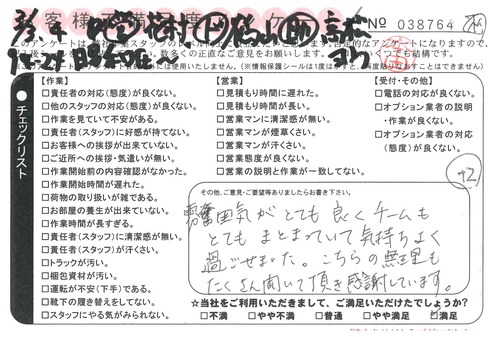 お客様満足度アンケート
№ 038764
チェックリスト
【作業】
□責任者の対応(態度)が良くない。
□他のスタッフの対応(態度)が良くない。
□作業を見ていて不安がある。
□責任者(スタッフ)に好感が持てない。
□お客様への挨拶が出来ていない。
□ご近所への挨拶・気遣いが無い。
□作業開始前の内容確認がなかった。
□作業開始時間が遅れた。
□荷物の取り扱いが雑である。
□お部屋の養生が出来ていない。
□作業時間が長すぎる。
□責任者(スタッフ)に清潔感が無い。
□責任者(スタッフ)が汗くさい。
□トラックが汚い。
□梱包資材が汚い。
□運転が不安(下手)である。
□靴下の履き替えをしてない。
□スタッフにやる気がみられない。
【営業】
□見積もり時間に遅れた。
□見積もり時間が長い。
□営業マンに清潔感が無い。
□営業マンが煙草くさい。
□営業マンが汗くさい。
□営業態度が良くない。
□営業の説明と作業が一致してない。
【受付・その他】
□電話の対応が良くない。
□オプション業者の説明
・作業が良くない。
□オプション業者の対応
(態度)が良くない。
その他、ご意見・ご要望等ありましたらお書き下さい。
雰囲気がとても良くチームも
とてもまとまっていて気持ちよく
過ごせました。こちらの無理も
たくさん聞いて頂き感謝しています。
☆当社をご利用いただきまして、ご満足いただけたでしょうか?
□不満 □やや不満 □普通 □やや満足 □満足